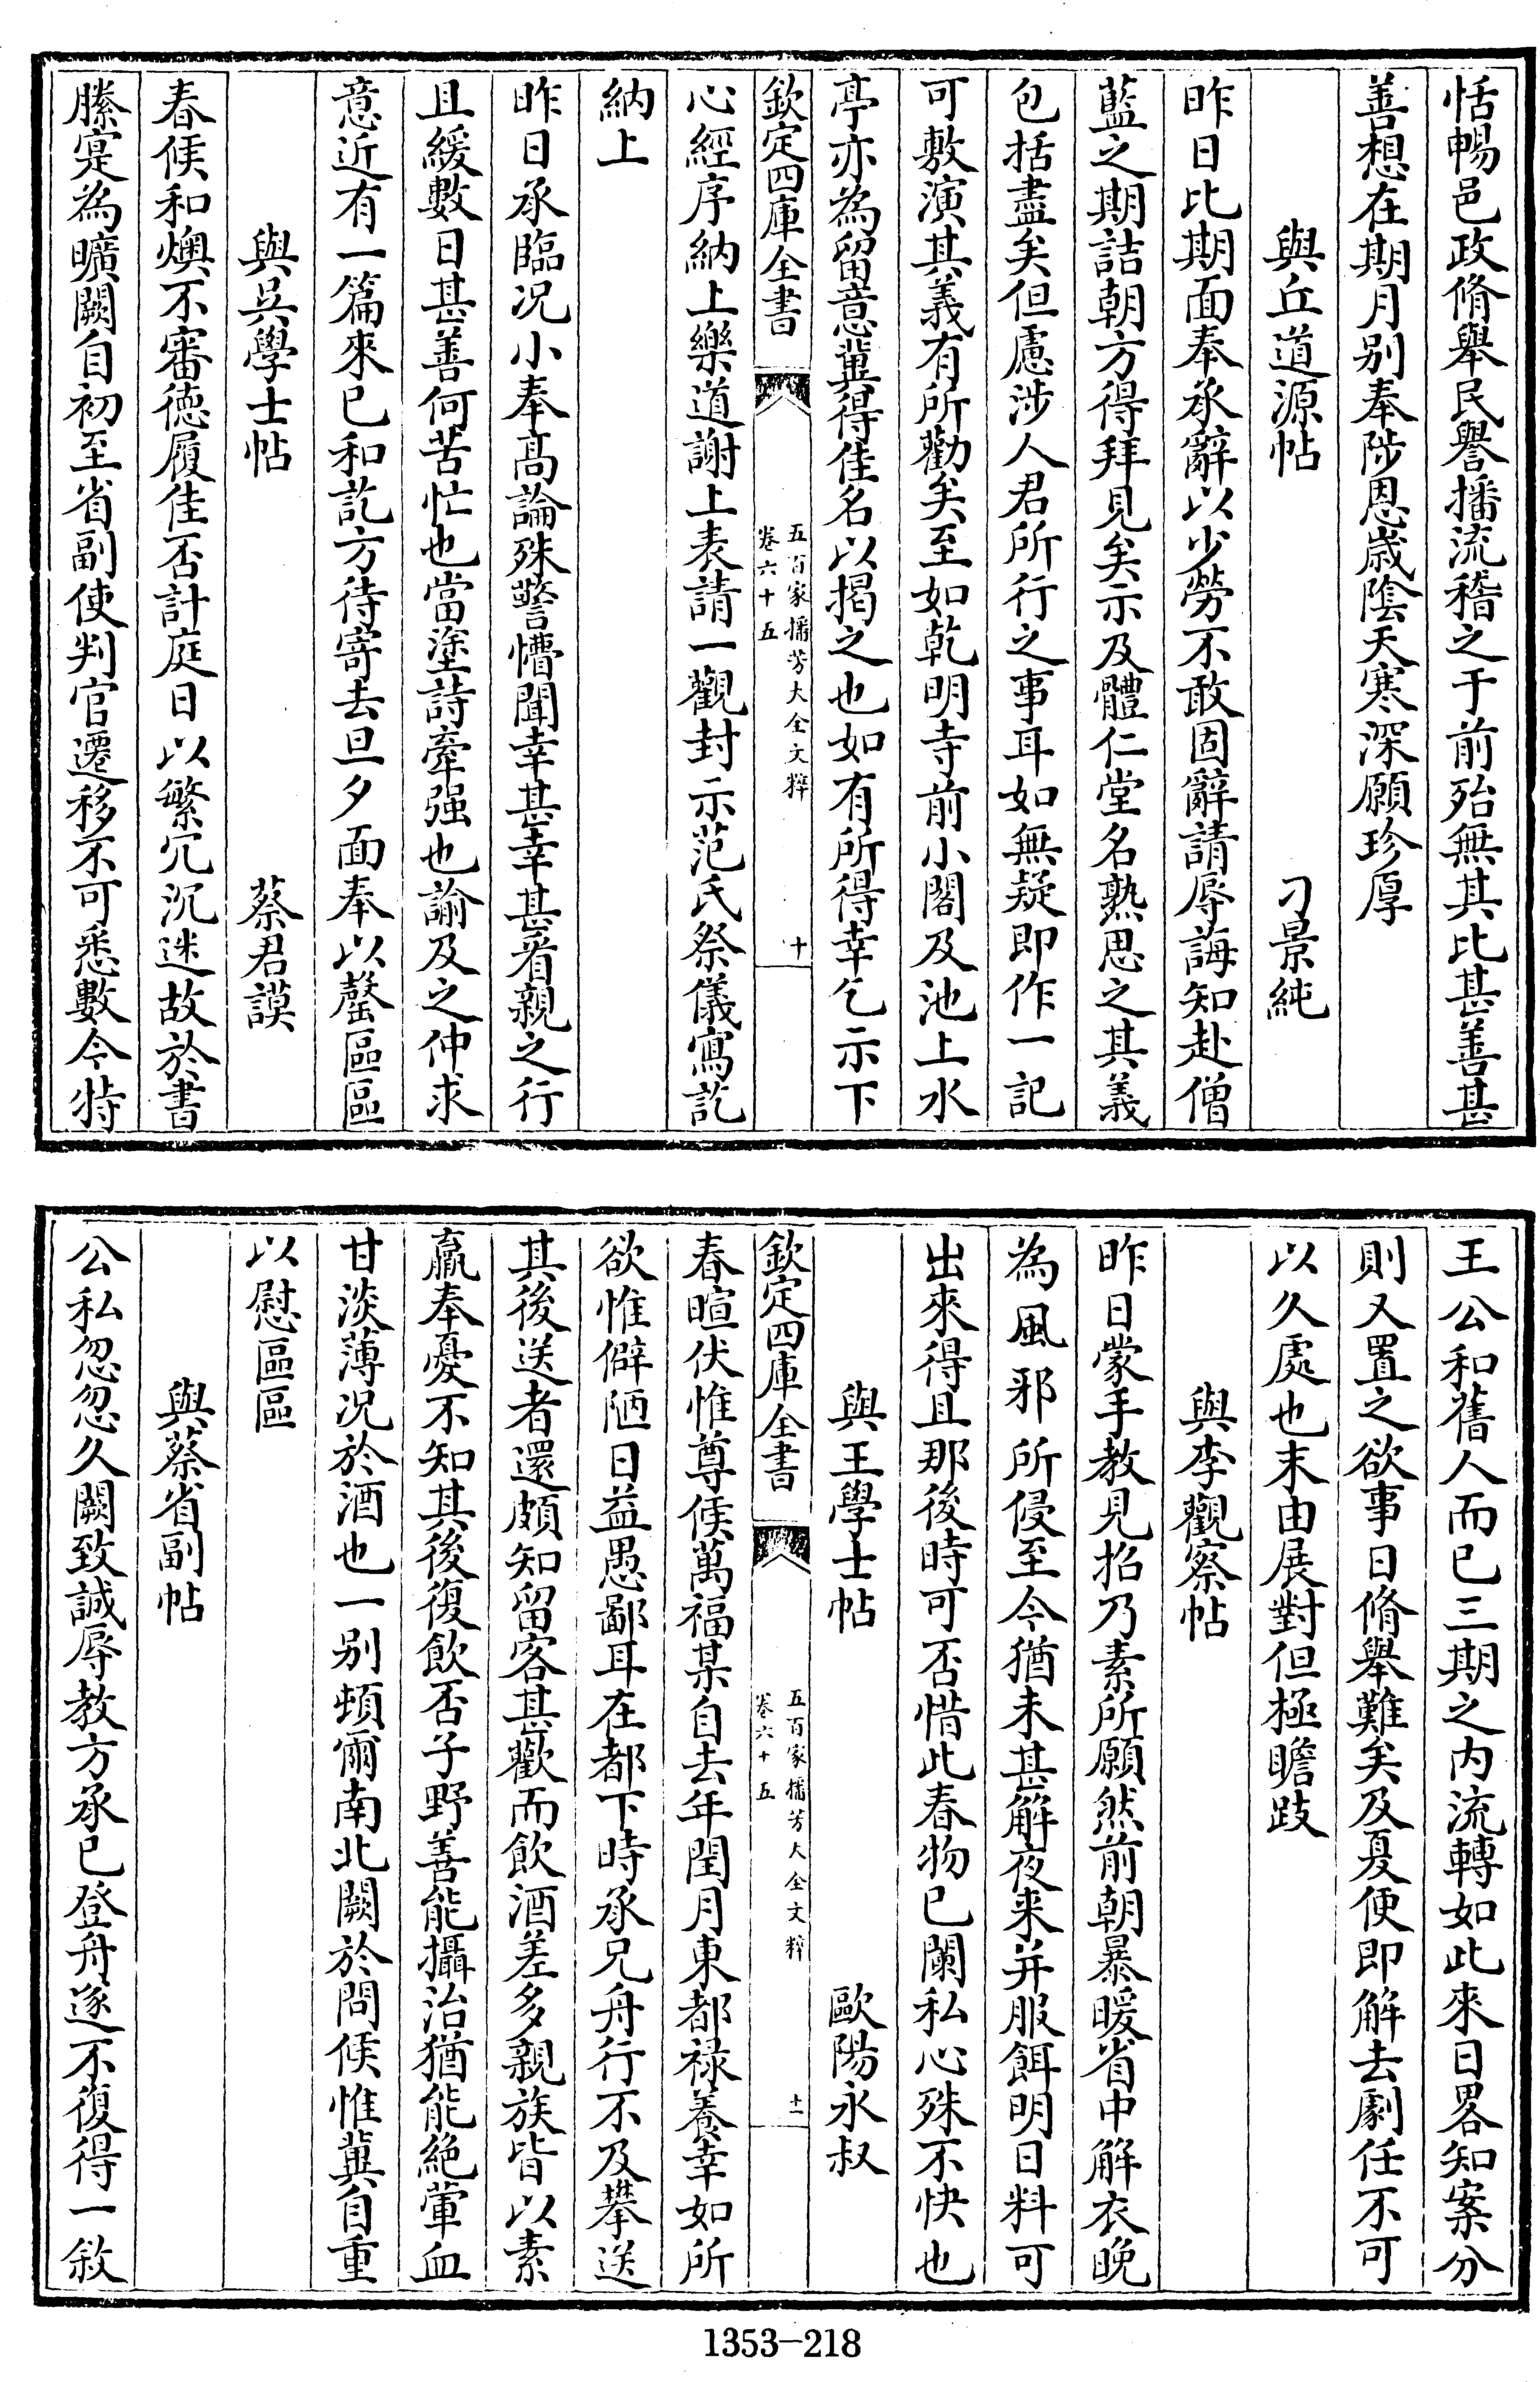 恬暢邑政脩舉民譽播流稽之于前殆無其比甚善甚
善想在期月别奉陟恩嵗隂天寒深願珍厚
與丘道源帖 刁景純
昨日比期面奉承辭以少勞不敢固辭請辱誨知赴僧
藍之期詰朝方得拜見矣示及體仁堂名熟思之其義
包括盡矣但慮涉人君所行之事耳如無疑即作一記
可敷演其義有所勸矣至如乾明寺前小閣及池上水
亭亦為留意冀得佳名以揭之也如有所得幸乞示下
欽定四庫全書 五百家播芳大全文粹 卷六十五 十
心經序納上樂道謝上表請一觀封示范氏祭儀寫訖
納上
昨日承臨况小奉髙論殊警懵聞幸甚幸甚看親之行
且緩數日甚善何苦忙也當塗詩牽强也諭及之仲求
意近有一篇來已和訖方待寄去旦夕面奉以罄區區
與吳學士帖 蔡君謨
春候和燠不審德履佳否計庭日以繁冗沉迷故於書
縢寔為曠闕自初至省副使判官遷移不可悉數今特
王公和舊人而已三期之内流轉如此來日畧知案分
則又置之欲事日脩舉難矣及夏便即解去劇任不可
以久處也末由展對但極瞻跂
與李觀察帖
昨日蒙手教見招乃素所願然前朝暴暖省中解衣晚
為風邪所侵至今猶未甚解夜来并服餌明日料可
出來得且那後時可否惜此春物已闌私心殊不快也
與王學士帖 歐陽永叔
欽定四庫全書 五百家播芳大全文粹 卷六十五 十一
春暄伏惟尊候萬福某自去年閏月東都禄養幸如所
欲惟僻陋日益愚鄙耳在都下時承兄舟行不及攀送
其後送者還頗知留客甚歡而飲酒差多親族皆以素
羸奉憂不知其後復飲否子野善能攝治猶能絶葷血
甘淡薄况於酒也一别頓爾南北闕於問候惟冀自重
以慰區區
與蔡省副帖
公私忽忽久闕致誠辱教方承已登舟遂不復得一敘
1353-218